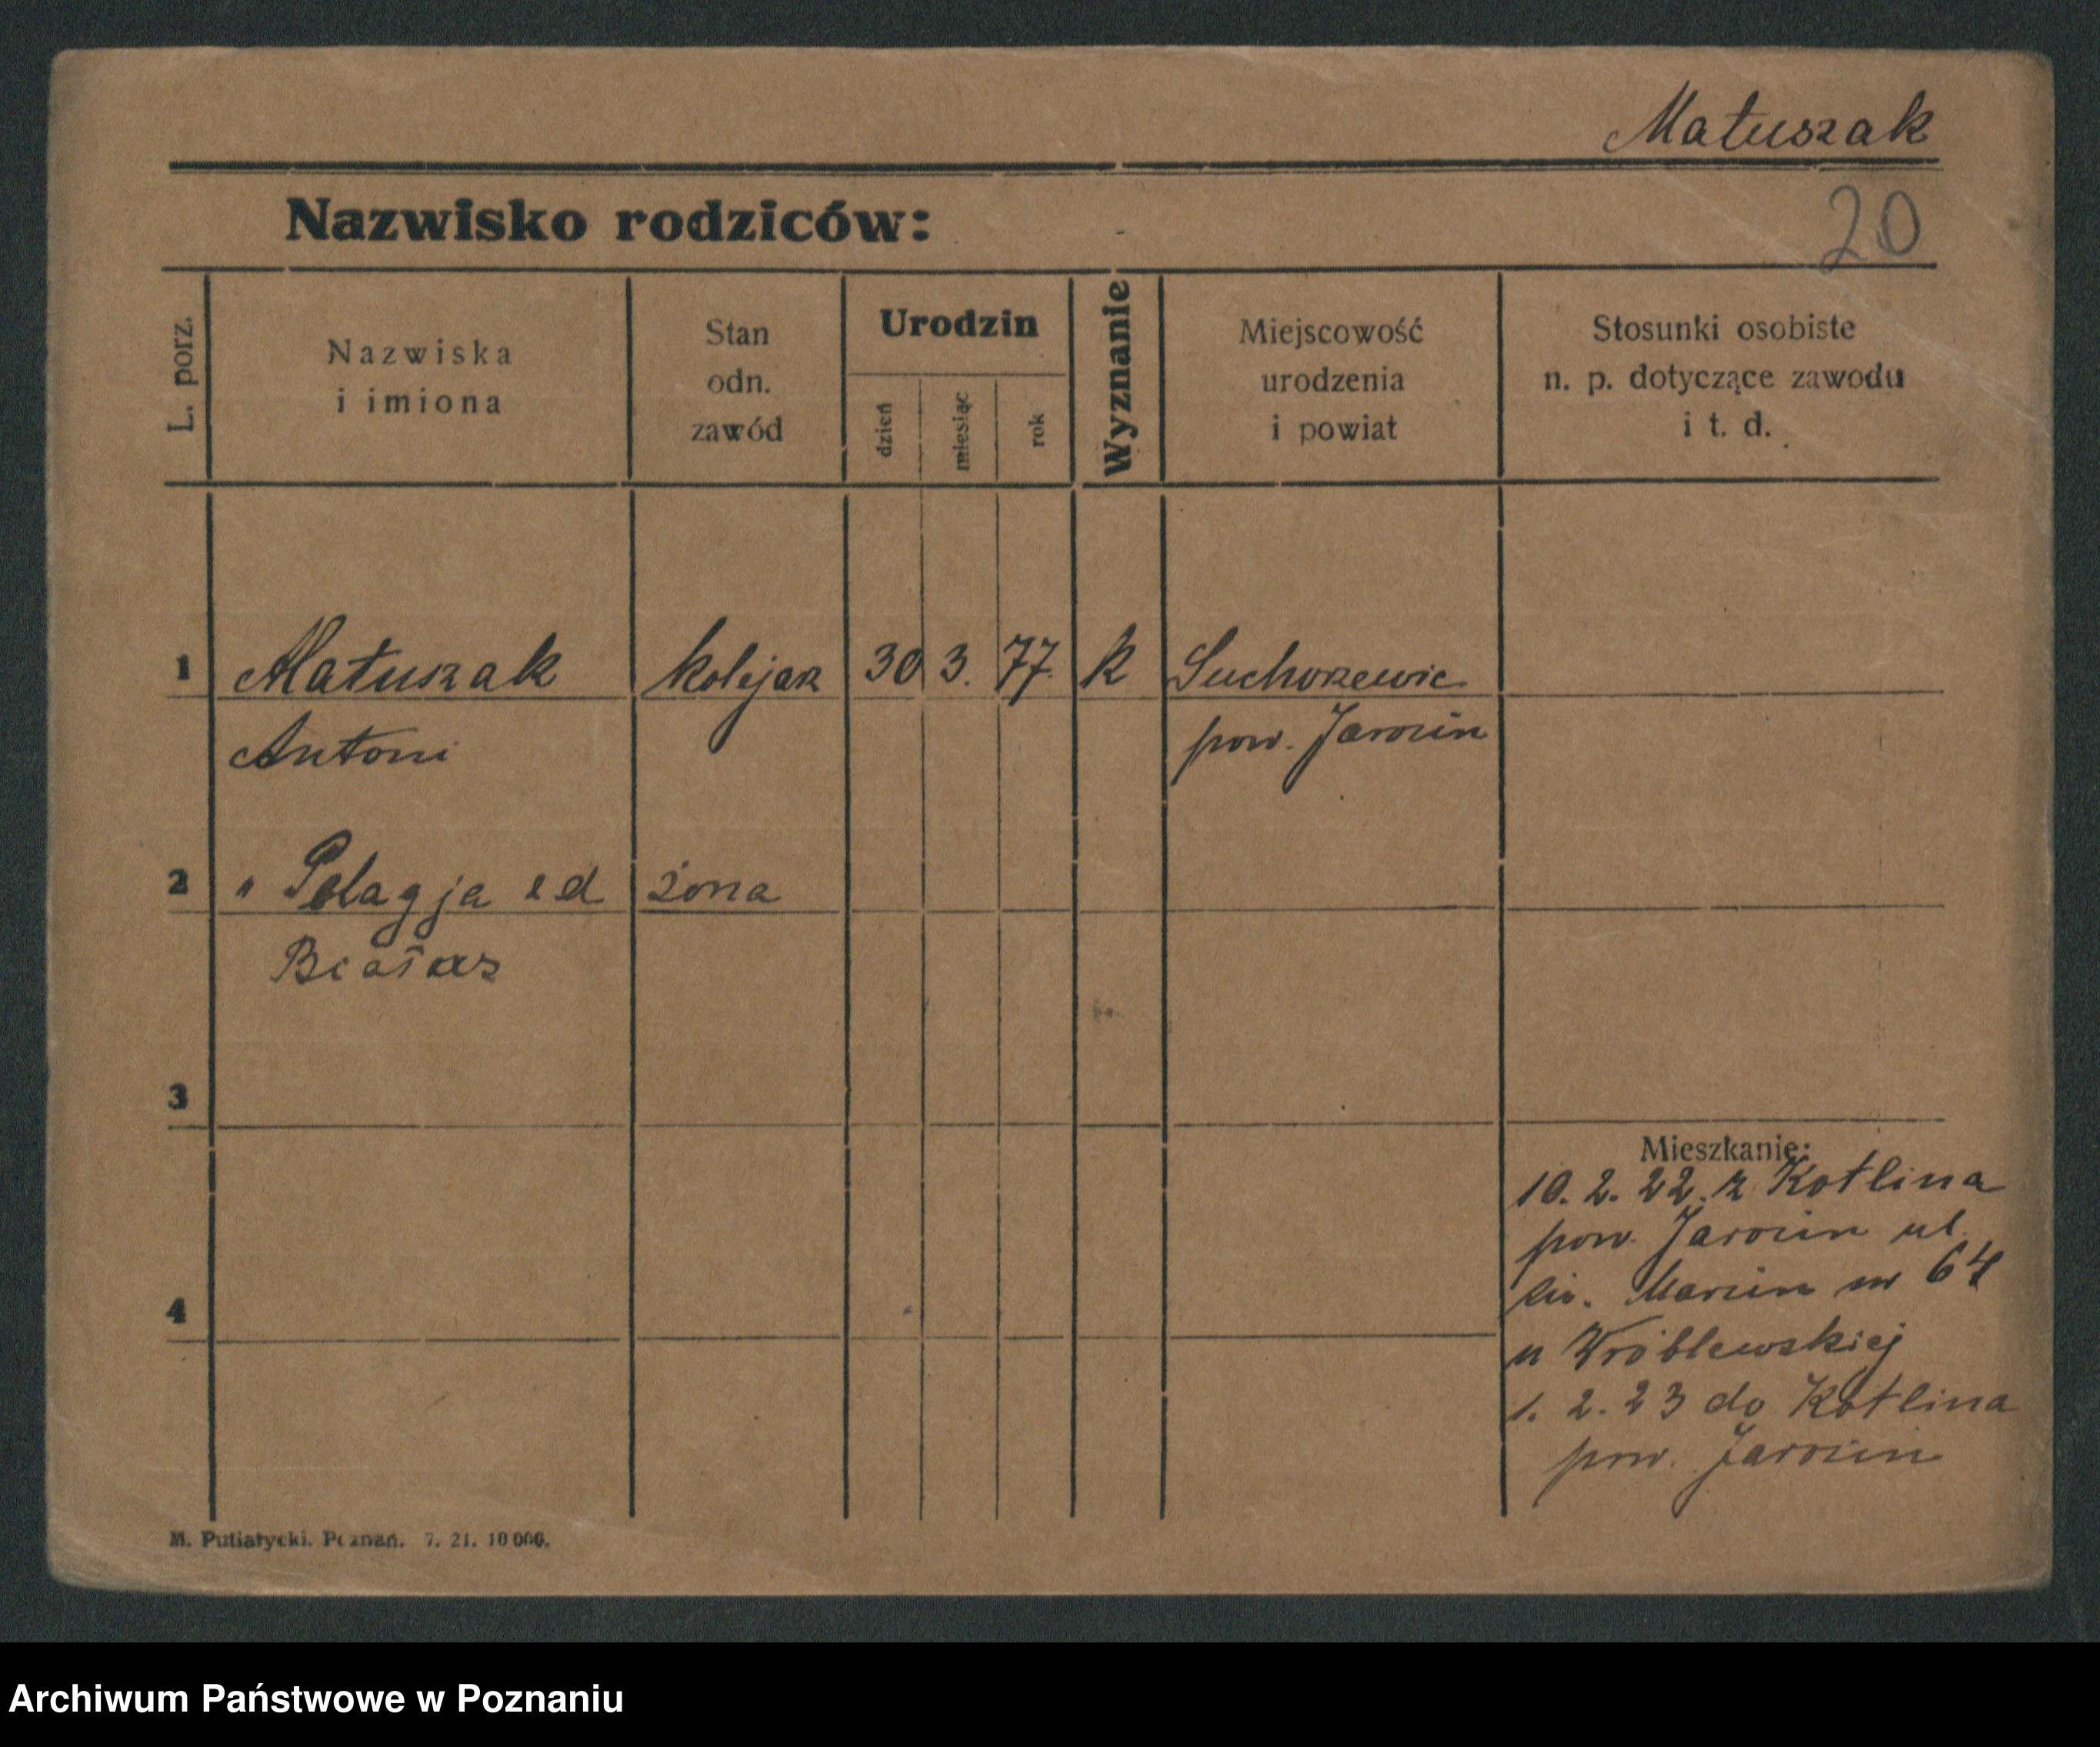 Matuszak
Nazwisko rodziców:
20
L. porz.
Nazwiska
i imiona
Stan
odn.
zawód
Urodzin
dzień
miesiąc
rok
Wyznanie
Miejscowość
urodzenia
i powiat
Stosunki osobiste
n. p. dotyczące zawodu
i t. d.
1 Matuszak kolejarz 30 3. 77. k Suchorzewie
Antoni pow. Jarocin
2 " Pelagja zd żona
Białas
3
Mieszkanie:
10. 2. 22. z Kotlina
pow. Jarocin ul.
św. Marcin nr 64
4
u Wróblewskiej
1. 2. 23 do Kotlina
pow. Jarocin
M. Putiatycki. Poznań. 7. 21. 10 000.
Archiwum Państwowe w Poznaniu